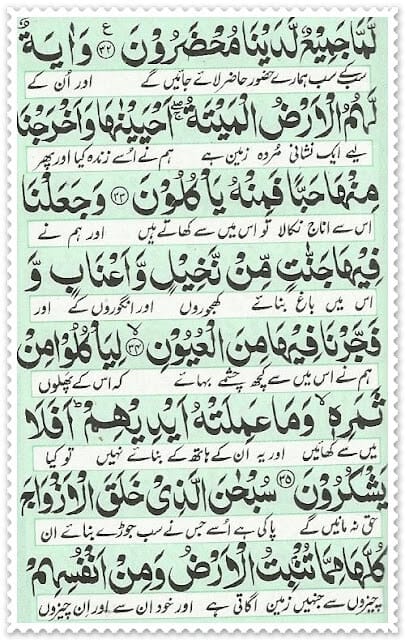 لَّمَّا جَمِيْعٌ لَّدَيْنَا مُحْضَرُوْنَ ۝۳۲ ع وَاٰيَةٌ
سب کے سب ہمارے حضور حاضر لائے جائیں گے اور اُن کے
لَّهُمُ الْاَرْضُ الْمَيْتَةُ ۚ اَحْيَيْنٰهَا وَاَخْرَجْنَا
لیے ایک نشانی مُردہ زمین ہے ہم نے اُسے زندہ کیا اور پھر
مِنْهَا حَبًّا فَمِنْهُ يَاْكُلُوْنَ ۝۳۳ وَجَعَلْنَا
اس سے اناج نکالا تو اس میں سے کھاتے ہیں اور ہم نے
فِيْهَا جَنّٰتٍ مِّنْ نَّخِيْلٍ وَّاَعْنَابٍ وَّ
اس میں باغ بنائے کھجوروں اور انگوروں کے اور
فَجَّرْنَا فِيْهَا مِنَ الْعُيُوْنِ ۝۳۴ لِيَاْكُلُوْا مِنْ
ہم نے اس میں سے کچھ چشمے بہائے کہ اس کے پھلوں
ثَمَرِهٖ ۙ وَمَا عَمِلَتْهُ اَيْدِيْهِمْ ؕ اَفَلَا
میں سے کھائیں اور یہ ان کے ہاتھ کے بنائے نہیں تو کیا
يَشْكُرُوْنَ ۝۳۵ سُبْحٰنَ الَّذِيْ خَلَقَ الْاَزْوَاجَ
حق نہ مانیں گے پاکی ہے اُسے جس نے سب جوڑے بنائے ان
كُلَّهَا مِمَّا تُنْۢبِتُ الْاَرْضُ وَمِنْ اَنْفُسِهِمْ
چیزوں سے جنہیں زمین اگاتی ہے اور خود ان سے اور ان چیزوں